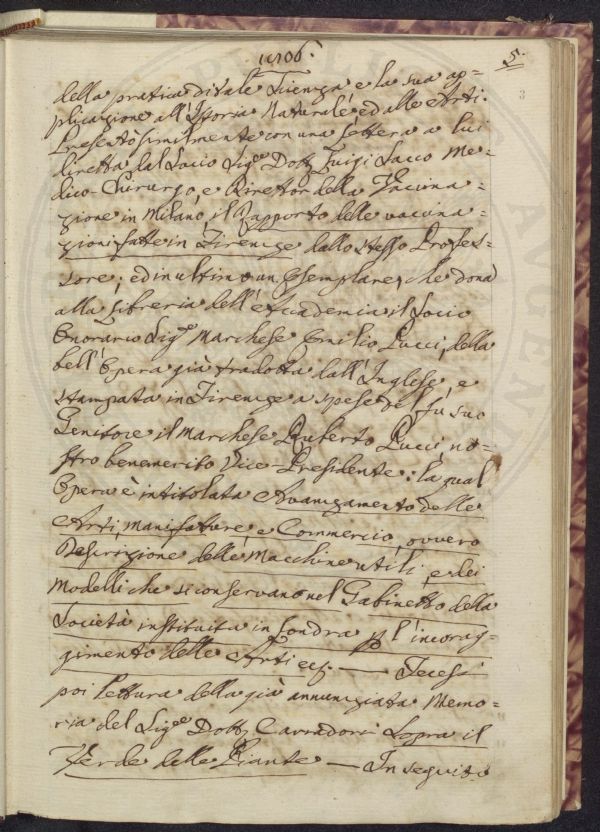 1806.
5.
3
della pratica di tale Scienza e la sua ap=
plicazione all'Istoria Naturale, ed alle Arti.
Presentò similmente con una Lettera a lui
diretta dal Socio Sigr. Dott. Luigi Sacco Me-
dico-Chirurgo, e Diretor della Vaccina-
zione in Milano, il Rapporto delle vaccina-
zioni fatte in Firenze dallo stesso Profes-
sore; ed in ultimo un Esemplare, che donà
alla Libreria dell'Accademia il Socio
Onorario Sigr. Marchese Emilio Pucci, della
bell'Opera già tradotta dall'Inglese, e
stampata in Firenze a spese del fu suo
Genitore il Marchese Ruberto Pucci, no=
stro benemerito Vice-Presidente: la qual
Opera è intitolata Avanzamento delle
Arti, Manifature, e Commercio, ovvero
Descrizione delle Macchine utili, e dei
Modelli che si conservano nel Gabinetto della
Società instituita in Londra pl'incorag-
gimento delle Arti ec. — Fecesi
poi lettura della già annunziata Memo-
ria del Sigr. Dott. Cavradori Sopra il
Verde delle Piante — In seguito